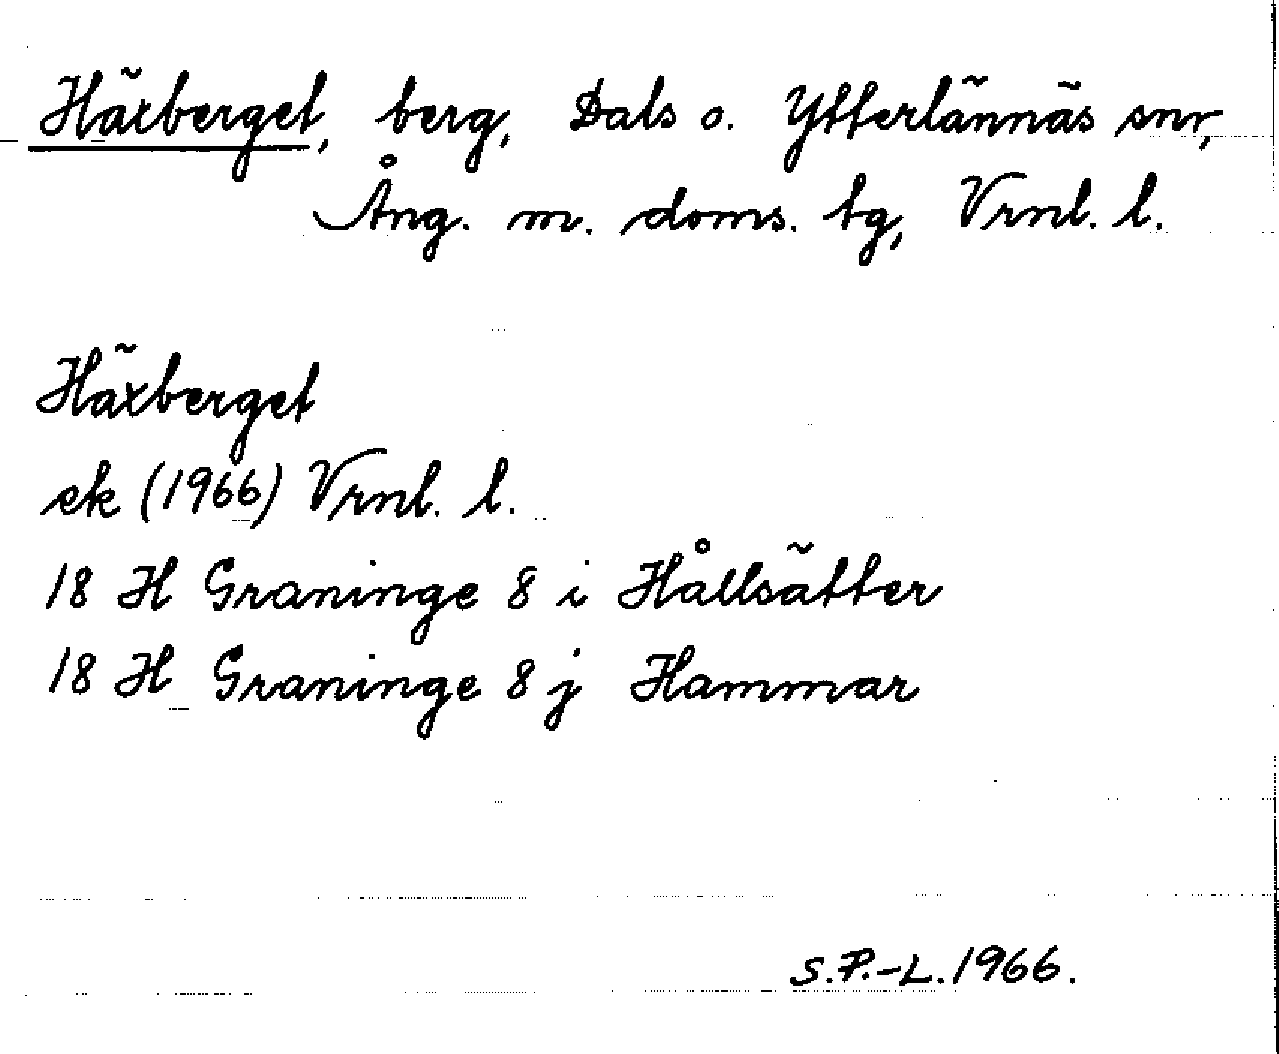 Häxberget, berg, Dals o. Ytterlännäs snr,
Ång. m. doms. tg, Vrnl. l.
Häxberget
ek (1966) Vrnl. l.
18 H Graninge 8 i Hållsätter
18 H Graninge 8 j Hammar
S.P.-L. 1966.